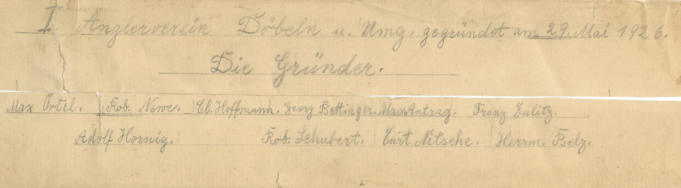 I. Anglerverein Döbeln u. Umg. gegründet am 29. Mai 1926.
Die Gründer.
Max Örtel. Rob. Nawe. Cl. Hoffmann. Georg Bettinger. Max Antrag. Franz Eulitz.
Adolf Hornig. Rob. Schubert. Curt Nitsche. Herrm. Pelz.